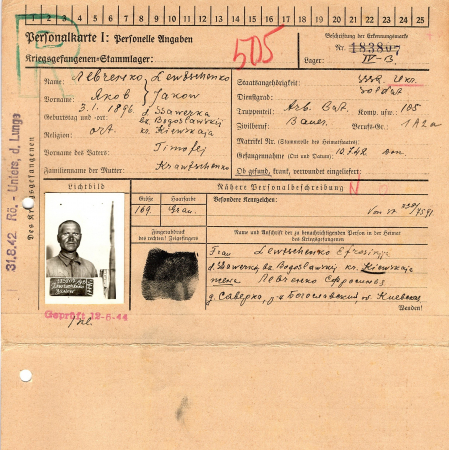 1 2 3 4 5 6 7 8 9 10 11 12 13 14 15 16 17 18 19 20 21 22 23 24 25
Personalkarte I: Personelle Angaben
Kriegsgefangenen-Stammlager:
505
Beschriftung der Erkennungsmarke
Nr. 183807
Lager: IV-B.
Name: Левченко Lewtschenko
Vorname: Яков Jakow
Geburtstag und -ort: 3.1.1896. d. Sawerka
bz. Bogoslawskij
Religion: ort. kr. Kiewskaja
Vorname des Vaters: Timofej
Familienname der Mutter: Krawtschenko
Staatsangehörigkeit: Ukr.
Dienstgrad: Soldat
Truppenteil: Arb. Bat. Komp. usw. 105
Zivilberuf: Bauer Berufs-Gr. 1 A 2 a
Matrikel Nr. (Stammrolle des Heimatstaates):
Gefangennahme (Ort und Datum): 10.7.42
Ob gesund, krank, verwundet eingeliefert:
31.8.42 Rö. - Unters, d. Lunge
Des Kriegsgefangenen
Lichtbild
Nähere Personalbeschreibung
Größe Haarfarbe Besondere Kennzeichen:
169. Grau.
Fingerabdruck
des rechten! Zeigefingers
Name und Anschrift der zu benachrichtigenden Person in der Heimat
des Kriegsgefangenen
Frau Lewtschenko Efrosinja
d. Sawerka, bz. Bogoslawskij kr. Kiewskaja
жена Левченко
д. Саверка, р-н Богословский, о. Киевская
Wenden!
Geprüft 12-6-44